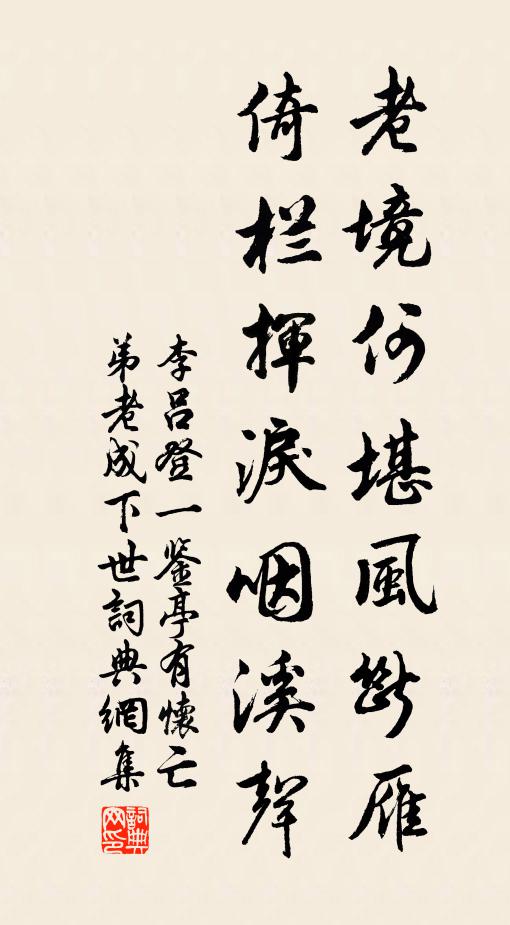 老境何堪風斷雁
倚栏揮淚咽溪聲
李呂登一鉴亭有懷亡
弟老成下世詞典網集
詞典
网印